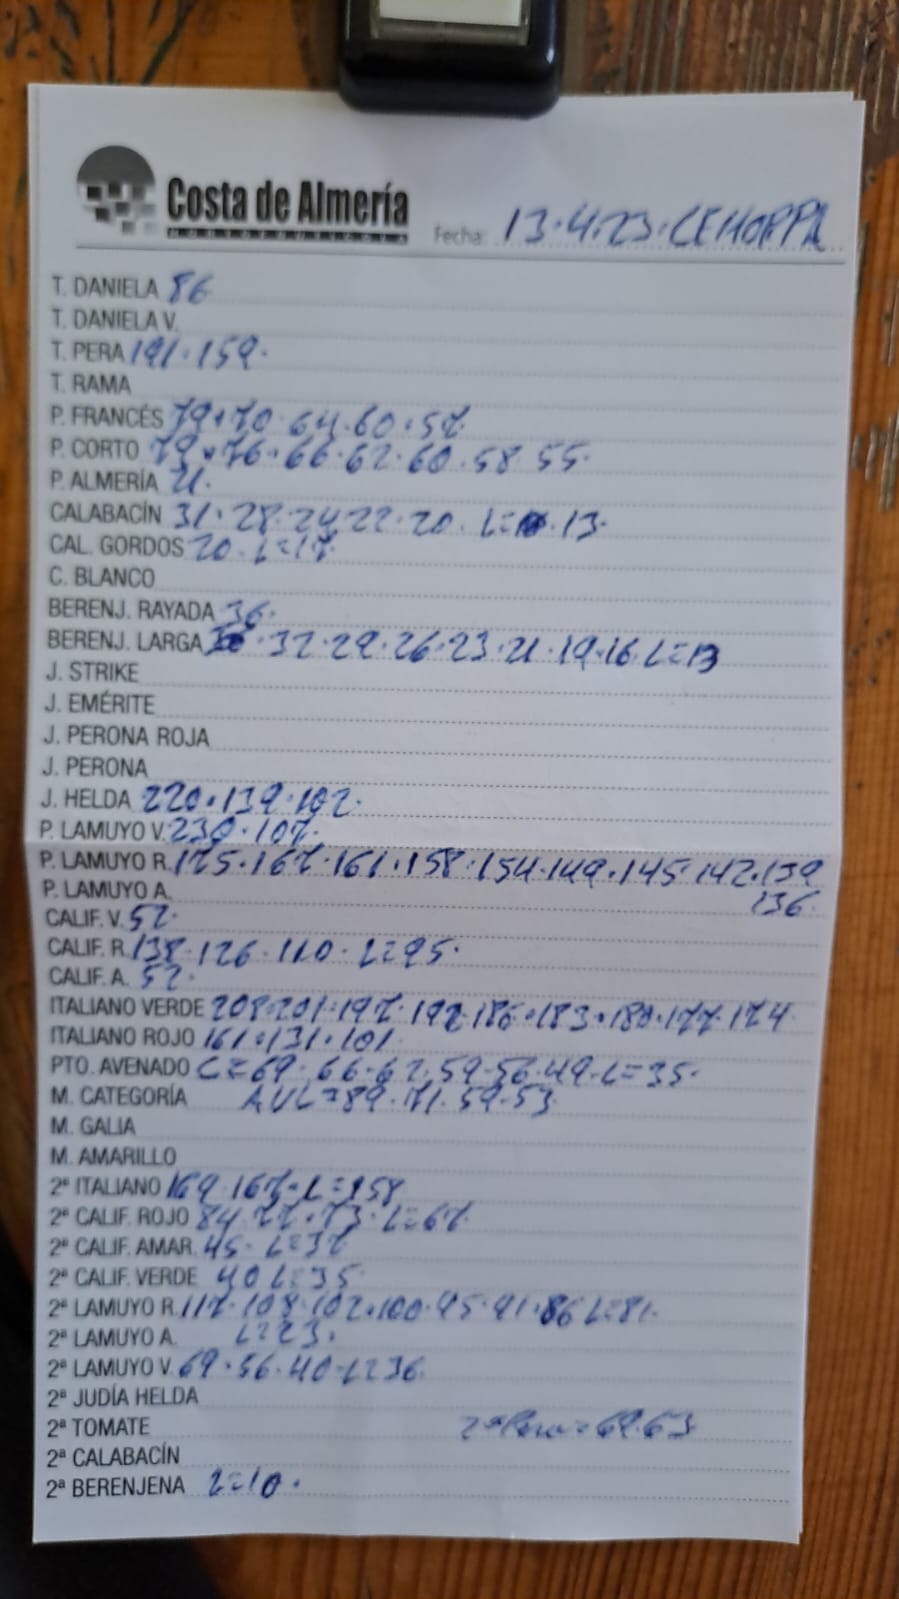 Costa de Almería
HORTOFRUTÍCOLA
Fecha: 13.4.23.CEHORPA
T. DANIELA 86
T. DANIELA V.
T. PERA 191.159.
T. RAMA
P. FRANCÉS 79.70.64.60.57.
P. CORTO 79.76.66.62.60.58.55.
P. ALMERÍA 21.
CALABACÍN 31.28.24.22.20. L= 13.
CAL. GORDOS 20. L=17.
C. BLANCO
BERENJ. RAYADA 36.
BERENJ. LARGA .32.29.26.23.21.19.16.L=13
J. STRIKE
J. EMÉRITE
J. PERONA ROJA
J. PERONA
J. HELDA 220.139.102.
P. LAMUYO V. 230.107.
P. LAMUYO R. 175.167.161.158.154.149.145.142.139
P. LAMUYO A. 136.
CALIF. V. 52.
CALIF. R. 138.126.110. L=95.
CALIF. A. 52.
ITALIANO VERDE 208.201.197.192.186.183.180.177.174
ITALIANO ROJO 161.131.101.
PTO. AVENADO C=69.66.62.59.56.49.L=35.
M. CATEGORÍA AVL=89.71.59.53
M. GALIA
M. AMARILLO
2ª ITALIANO 169.167.L=158
2ª CALIF. ROJO 84.77.73.L=67.
2ª CALIF. AMAR. 45. L=37
2ª CALIF. VERDE 40 L=35.
2ª LAMUYO R. 117.108.102.100.95.91.86 L=81.
2ª LAMUYO A. L=23.
2ª LAMUYO V. 69.56.40.L=36.
2ª JUDÍA HELDA
2ª TOMATE 2ª Pera=69.63
2ª CALABACÍN
2ª BERENJENA L=10.